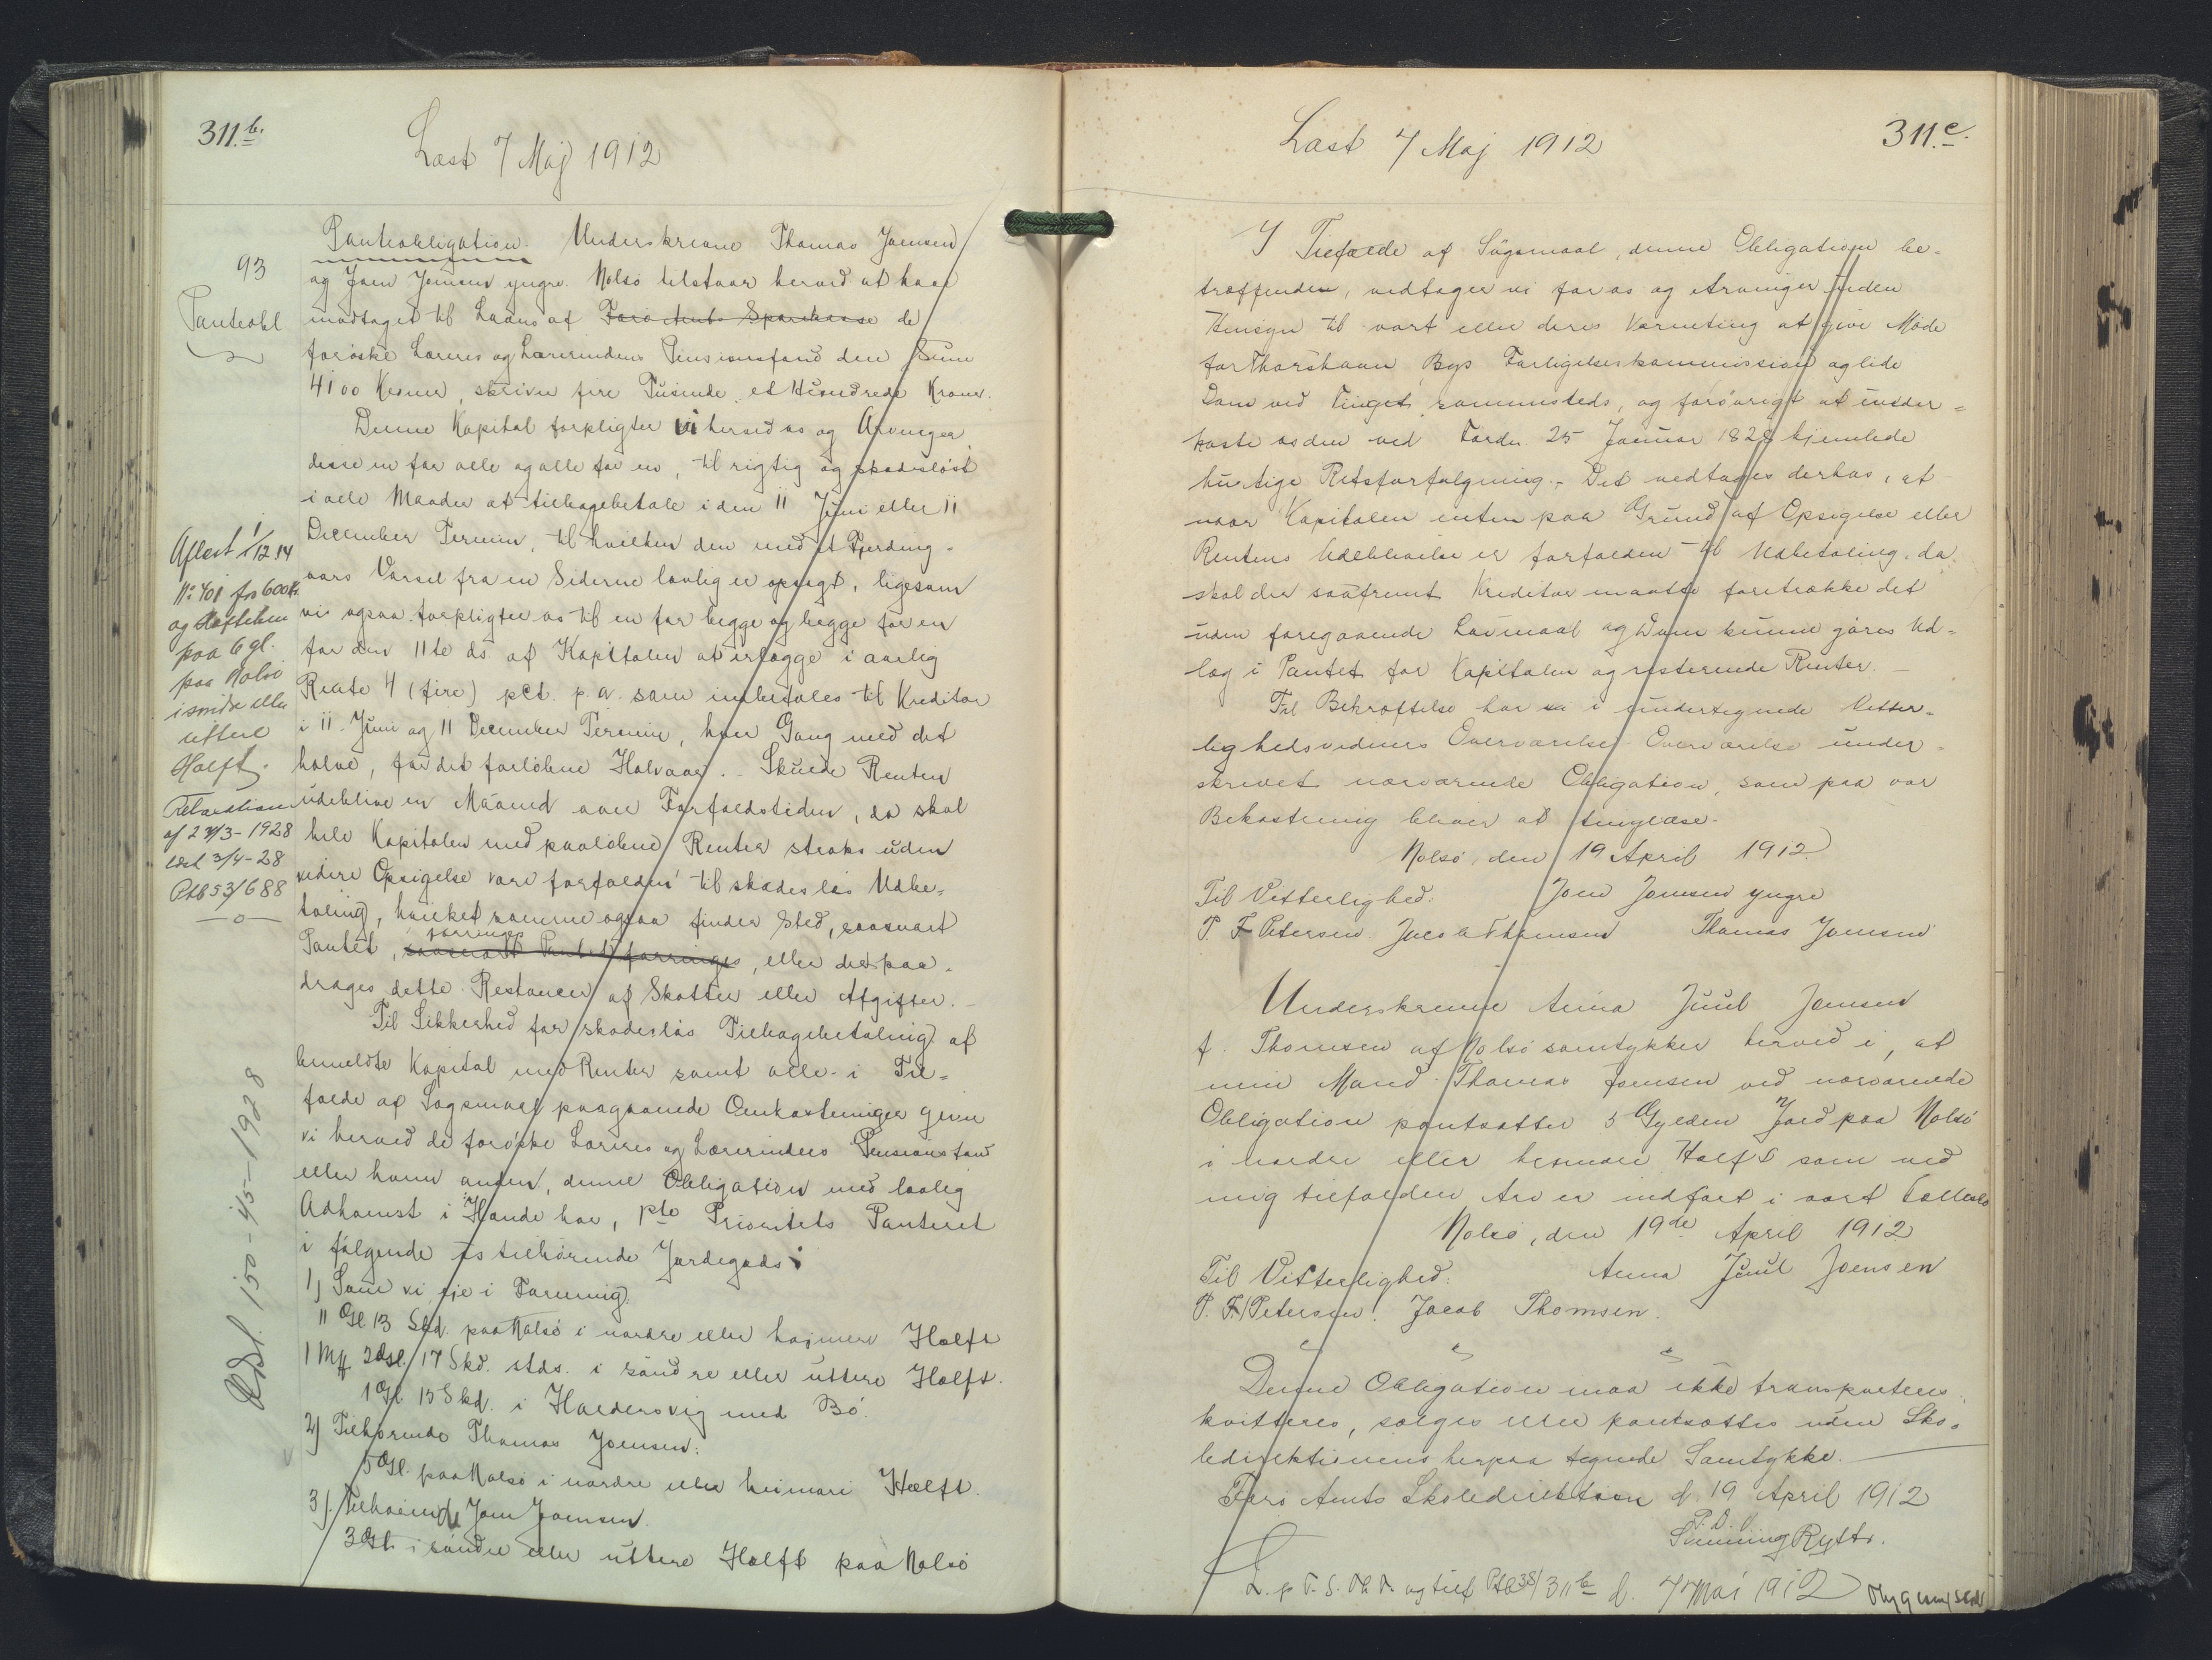 311.b.
Læst 7 Maj 1912
93
Panteobl
Panteobligation. Underskrevne Thomas Joensen
og Joen Joensen yngre. Nolsö tilstaar herved at have
modtaget til Laans af Færö Amts Sparekasse de
færöske Læreres og Lærerinders Pensionsfond den Sum
4100 Kroner, skriver fire Tusinde et Hundrede Kroner.
Denne Kapital forpligter vi herved os og Arvinger,
disse en for alle og alle for en, til rigtig og skadeslöst
i alle Maader at tilbagebetale i den 11 Juni eller 11
December Termin, til hvilken den med et Fjerding-
aars Varsel fra en af Siderne lovlig er opsagt, ligesom
vi ogsaa forpligter os til en for begge og begge for en
for den 11te ds af Kapitalen at erlægge i aarlig
Rente 4 (fire) pCt. p.a. som indbetales til Kreditor
i 11. Juni og 11 December Termin, hver Gang med det
halve, for det forløbne Halvaar. - Skulde Renten
udeblive en Maaned over Forfaldstiden, da skal
hele Kapitalen med paaløbne Renter straks uden
videre Opsigelse være forfalden til skadeslös Udbe-
taling, hvilket samme ogsaa finder Sted, saasnart
Pantet, saasnart Pantet forringes, eller der paa-
forringes
drages dette Restancer af Skatter eller Afgifter. -
Til Sikkerhed for skadeslös Tilbagebetaling af
bemeldte Kapital med Renter samt alle i Til-
fælde af Søgsmaal paagaaende Omkostninger giver
vi herved de færöske Læreres og Lærerinders Pensionsfond
eller hvem anden, denne Obligation med lovlig
Adkomst i Hænde har, pte Prioritets Panteret
i følgende os tilhörende Jordegods:
1) Som vi eje i Forening.
11 Gl. 13 Skd. paa Nolsö i nordre eller hejmere Hælft
1 Mk 2 Gl. 17 Skd. stds. i søndre eller uttere Hælft.
1 Gl. 15 Skd. i Haldersvig med Bö.
2) Tilhörende Thomas Joensen:
5 Gl. paa Nolsö i nordre eller heimari Hælft.
3). Tilhörende Joen Joensen.
3 Gl. i søndre eller uttere Hælft paa Nolsö
Aflæst 1/12.14
No 401 for 600 Kr.
og Hæftelsen
paa 6 gl.
paa Nolsö
i søndre eller
uttere
Hælft.
Relaxation
af 27/3-1928
læst 3/4-28
Ptb 53/688
Udsl. 150-45-1928
Læst 7 Maj 1912
311.c.
I Tilfælde af Sögsmaal, denne Obligation be-
træffende, vedtager vi for os og Arvinger uden
Hensyn til vort eller deres Værneting at give Møde
for Thorshavn Bys Forligelseskommission og lide
Dom ved Tinget sammesteds, og forövrigt at under-
kaste os den ved Fordn. 25 Januar 1828 hjemlede
hurtige Retsforfølgning. - Det vedtages derhos, at
naar Kapitalen enten paa Grund af Opsigelse eller
Rentens Udeblivelse er forfalden til Udbetaling, da
skal der saafremt Kreditor maatte foretrække det
uden foregaaende Lavmaal og Dom kunne gøres Ud-
læg i Pantet for Kapitalen og resterende Renter. -
Til Bekræftelse har vi i undertegnede Vitter-
lighedsvidners Overværelse Overværelse under-
skrevet nærværende Obligation, som paa vor
Bekostning bliver at tinglæse.
Nolsö, den 19 April 1912.
Til Vitterlighed: Joen Joensen yngre
P. F. Petersen Jacob Thomsen Thomas Joensen
Underskrevne Anna Juul Joensen
f. Thomsen af Nolsö samtykker herved i, at
min Mand Thomas Joensen ved nærværende
Obligation pantsætter 5 Gylden Jord paa Nolsö
i nordre eller heimari Hælft som ved
mig tilfalden Arv er indført i vort Fælleseie
Nolsö, den 19de April 1912
Til Vitterlighed: Anna Juul Joensen
P. F. Petersen. Jacob Thomsen.
Denne Obligation maa ikke transporteres,
kvitteres, sælges eller pantsættes uden Sko-
ledirektionens herpaa tegnede Samtykke.
Færö Amts Skoledirektion d. 19 April 1912
P.D.V.
Svenning Rytter.
L. p. T. S. Ob. R. og tilf Ptb 38/311b d. 7 Mai 1912